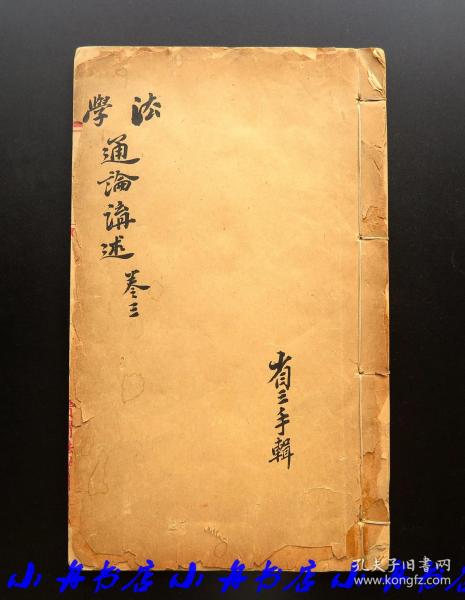 法學
通論講述
卷三
省三手輯
小舟书店 小舟书店 小舟书店
孔夫子旧书网
www.kongfz.com